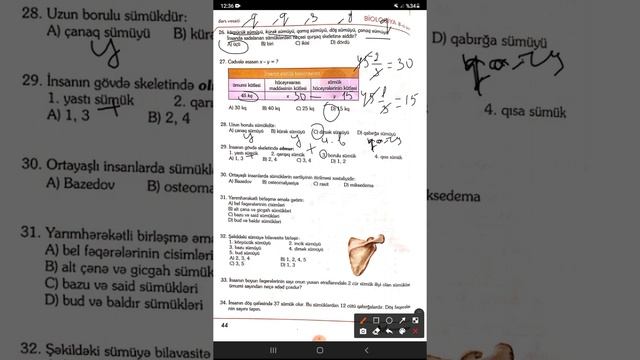 28. Uzun borulu sümükdür:
A) çanaq sümüyü
B) kür
y
29. İnsanın gövdə skeletində
1. yastı sümük
2. qar
A) 1, 3
B) 2, 4
30. Ortayaşlı insanlarda sümüklə
A) Bazedov
B) osteoma
31. Yarımhərəkətli birləşmə əmə
A) bel fəqərələrinin cisimləri
B) alt çənə və gicgah sümük
C) bazu və said sümükləri
D) bud və baldır sümükləri
32. Şəkildəki sümüyə bilavasitə
12:36
84%
dərs vəsaiti
BİOLOGİYA
26. körpücük sümüyü, kürək sümüyü, qamış sümüyü, döş sümüyü, çanaq sümüyü
İnsanda sadalanan sümüklərdən neçəsi qurşaq skeletinə aiddir?
A) üçü
B) biri
C) ikisi
D) dördü
27. Cədvələ əsasən x – y = ?
ümumi kütləsi
hüceyrəarası maddəsinin kütləsi
sümük hüceyrələrinin kütləsi
45 kq
x 30
y 15
A) 30 kq
B) 40 kq
C) 25 kq
D) 15 kq
= 30
= 15
28. Uzun borulu sümükdür:
A) çanaq sümüyü
B) kürək sümüyü
C) dirsək sümüyü
D) qabırğa sümüyü
y
y
u.b
qarış
29. İnsanın gövdə skeletində olmur:
1. yastı sümük
2. qarışıq sümük
3. borulu sümük
4. qısa sümük
A) 1, 3
B) 2, 4
C) 3, 4
D) 1, 2
30. Ortayaşlı insanlarda sümüklərin əyriliyinin itirilməsi xəstəliyidir:
A) Bazedov
B) osteomalyatsiya
C) raxit
D) miksedema
31. Yarımhərəkətli birləşmə əmələ gətirir:
A) bel fəqərələrinin cisimləri
B) alt çənə və gicgah sümükləri
C) bazu və said sümükləri
D) bud və baldır sümükləri
32. Şəkildəki sümüyə bilavasitə birləşir:
1. körpücük sümüyü
2. incik sümüyü
3. bazu sümüyü
4. dirsək sümüyü
5. bud sümüyü
A) 2, 3, 4
B) 1, 2, 4, 5
C) 3, 5
D) 1, 3
33. İnsanın boyun fəqərələrinin sayı onun yuxarı ətraflarındakı 2 cür sümük iliyi olan sümüklərin
ümumi sayından neçə ədəd çoxdur?
34. İnsanın döş qəfəsində 37 sümük olur. Bu sümüklərdən 12 cütü qabırğalardır. Döş fəqərələri-
nin sayını tapın.
44
D) qabırğa sümüyü
qarış
4. qısa sümük
ksedema